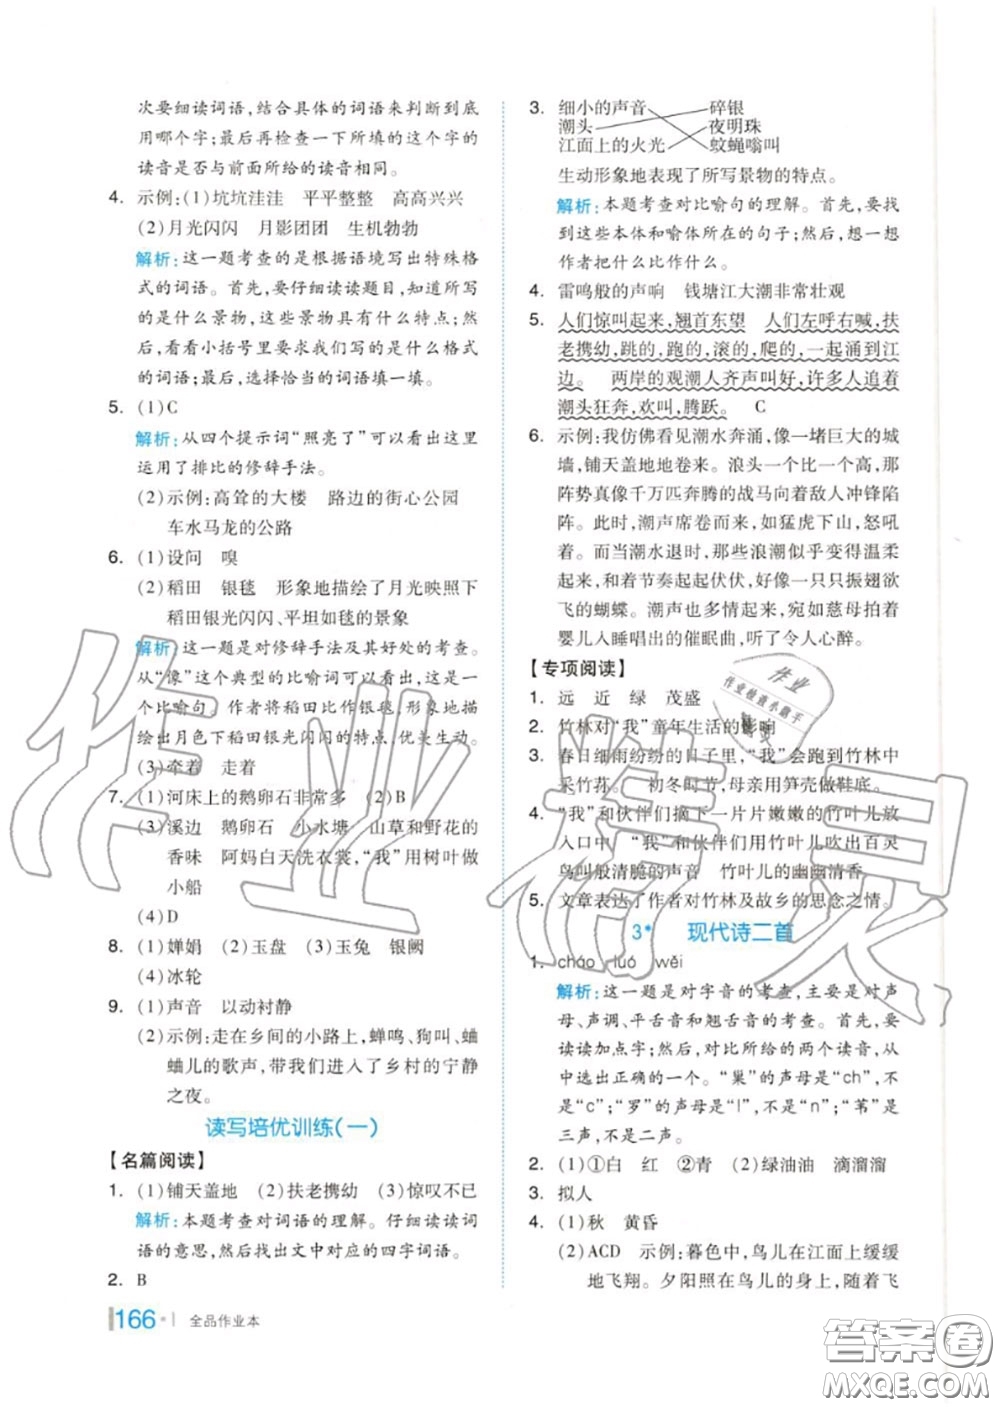 次要细读词语,结合具体的词语来判断到底
用哪个字;最后再检查一下所填的这个字的
读音是否与前面所给的读音相同。
4. 示例:(1)坑坑洼洼 平平整整 高高兴兴
(2)月光闪闪 月影团团 生机勃勃
解析:这一题考查的是根据语境写出特殊格
式的词语。首先,要仔细读读题目,知道所写
的是什么景物,这些景物具有什么特点;然
后,看看小括号里要求我们写的是什么格式
的词语;最后,选择恰当的词语填一填。
5. (1)C
解析:从四个提示词“照亮了”可以看出这里
运用了排比的修辞手法。
(2)示例:高耸的大楼 路边的街心公园
车水马龙的公路
6. (1)设问 嗅
(2)稻田 银毯 形象地描绘了月光映照下
稻田银光闪闪、平坦如毯的景象
解析:这一题是对修辞手法及其好处的考查。
从“像”这个典型的比喻词可以看出,这是一
个比喻句。作者将稻田比作银毯,形象地描
绘出月色下稻田银光闪闪的特点,优美生动。
(3)牵着 走着
7. (1)河床上的鹅卵石非常多 (2)B
(3)溪边 鹅卵石 小水塘 山草和野花的
香味 阿妈白天洗衣裳,“我”用树叶做
小船
(4)D
8. (1)婵娟 (2)玉盘 (3)玉兔 银阙
(4)冰轮
9. (1)声音 以动衬静
(2)示例:走在乡间的小路上,蝉鸣、狗叫、蛐
蛐儿的歌声,带我们进入了乡村的宁静
之夜。
读写培优训练(一)
【名篇阅读】
1. (1)铺天盖地 (2)扶老携幼 (3)惊叹不已
解析:本题考查对词语的理解。仔细读读词
语的意思,然后找出文中对应的四字词语。
2. B
166 全品作业本
3. 细小的声音 碎银
潮头 夜明珠
江面上的火光 蚊蝇嗡叫
生动形象地表现了所写景物的特点。
解析:本题考查对比喻句的理解。首先,要找
到这些本体和喻体所在的句子;然后,想一想
作者把什么比作什么。
4. 雷鸣般的声响 钱塘江大潮非常壮观
5. 人们惊叫起来,翘首东望 人们左呼右喊,扶
老携幼,跳的,跑的,滚的,爬的,一起涌到江
边。 两岸的观潮人齐声叫好,许多人追着
潮头狂奔,欢叫,腾跃。 C
6. 示例:我仿佛看见潮水奔涌,像一堵巨大的城
墙,铺天盖地地卷来。浪头一个比一个高,那
阵势真像千万匹奔腾的战马向着敌人冲锋陷
阵。此时,潮声席卷而来,如猛虎下山,怒吼
着。而当潮水退时,那些浪潮似乎变得温柔
起来,和着节奏起起伏伏,好像一只只振翅欲
飞的蝴蝶。潮声也多情起来,宛如慈母拍着
婴儿入睡唱出的催眠曲,听了令人心醉。
【专项阅读】
1. 远 近 绿 茂盛
2. 竹林对“我”童年生活的影响
3. 春日细雨纷纷的日子里,“我”会跑到竹林中
采竹荪。 初冬时节,母亲用笋壳做鞋底。
4. “我”和伙伴们摘下一片片嫩嫩的竹叶儿放
入口中 “我”和伙伴们用竹叶儿吹出百灵
鸟叫般清脆的声音 竹叶儿的幽幽清香
5. 文章表达了作者对竹林及故乡的思念之情。
3* 现代诗二首
1. cháo luó wěi
解析:这一题是对字音的考查,主要是对声
母、声调、平舌音和翘舌音的考查。首先,要
读读加点字;然后,对比所给的两个读音,从
中选出正确的一个。“巢”的声母是“ch”,不
是“c”;“罗”的声母是“l”,不是“n”;“苇”是
三声,不是二声。
2. (1)①白 红 ②青 (2)绿油油 滴溜溜
3. 拟人
4. (1)秋 黄昏
(2)ACD 示例:暮色中,鸟儿在江面上缓缓
地飞翔。夕阳照在鸟儿的身上,随着飞
作业精灵
作业
作业检查小助手
答案圈
MXQE.COM